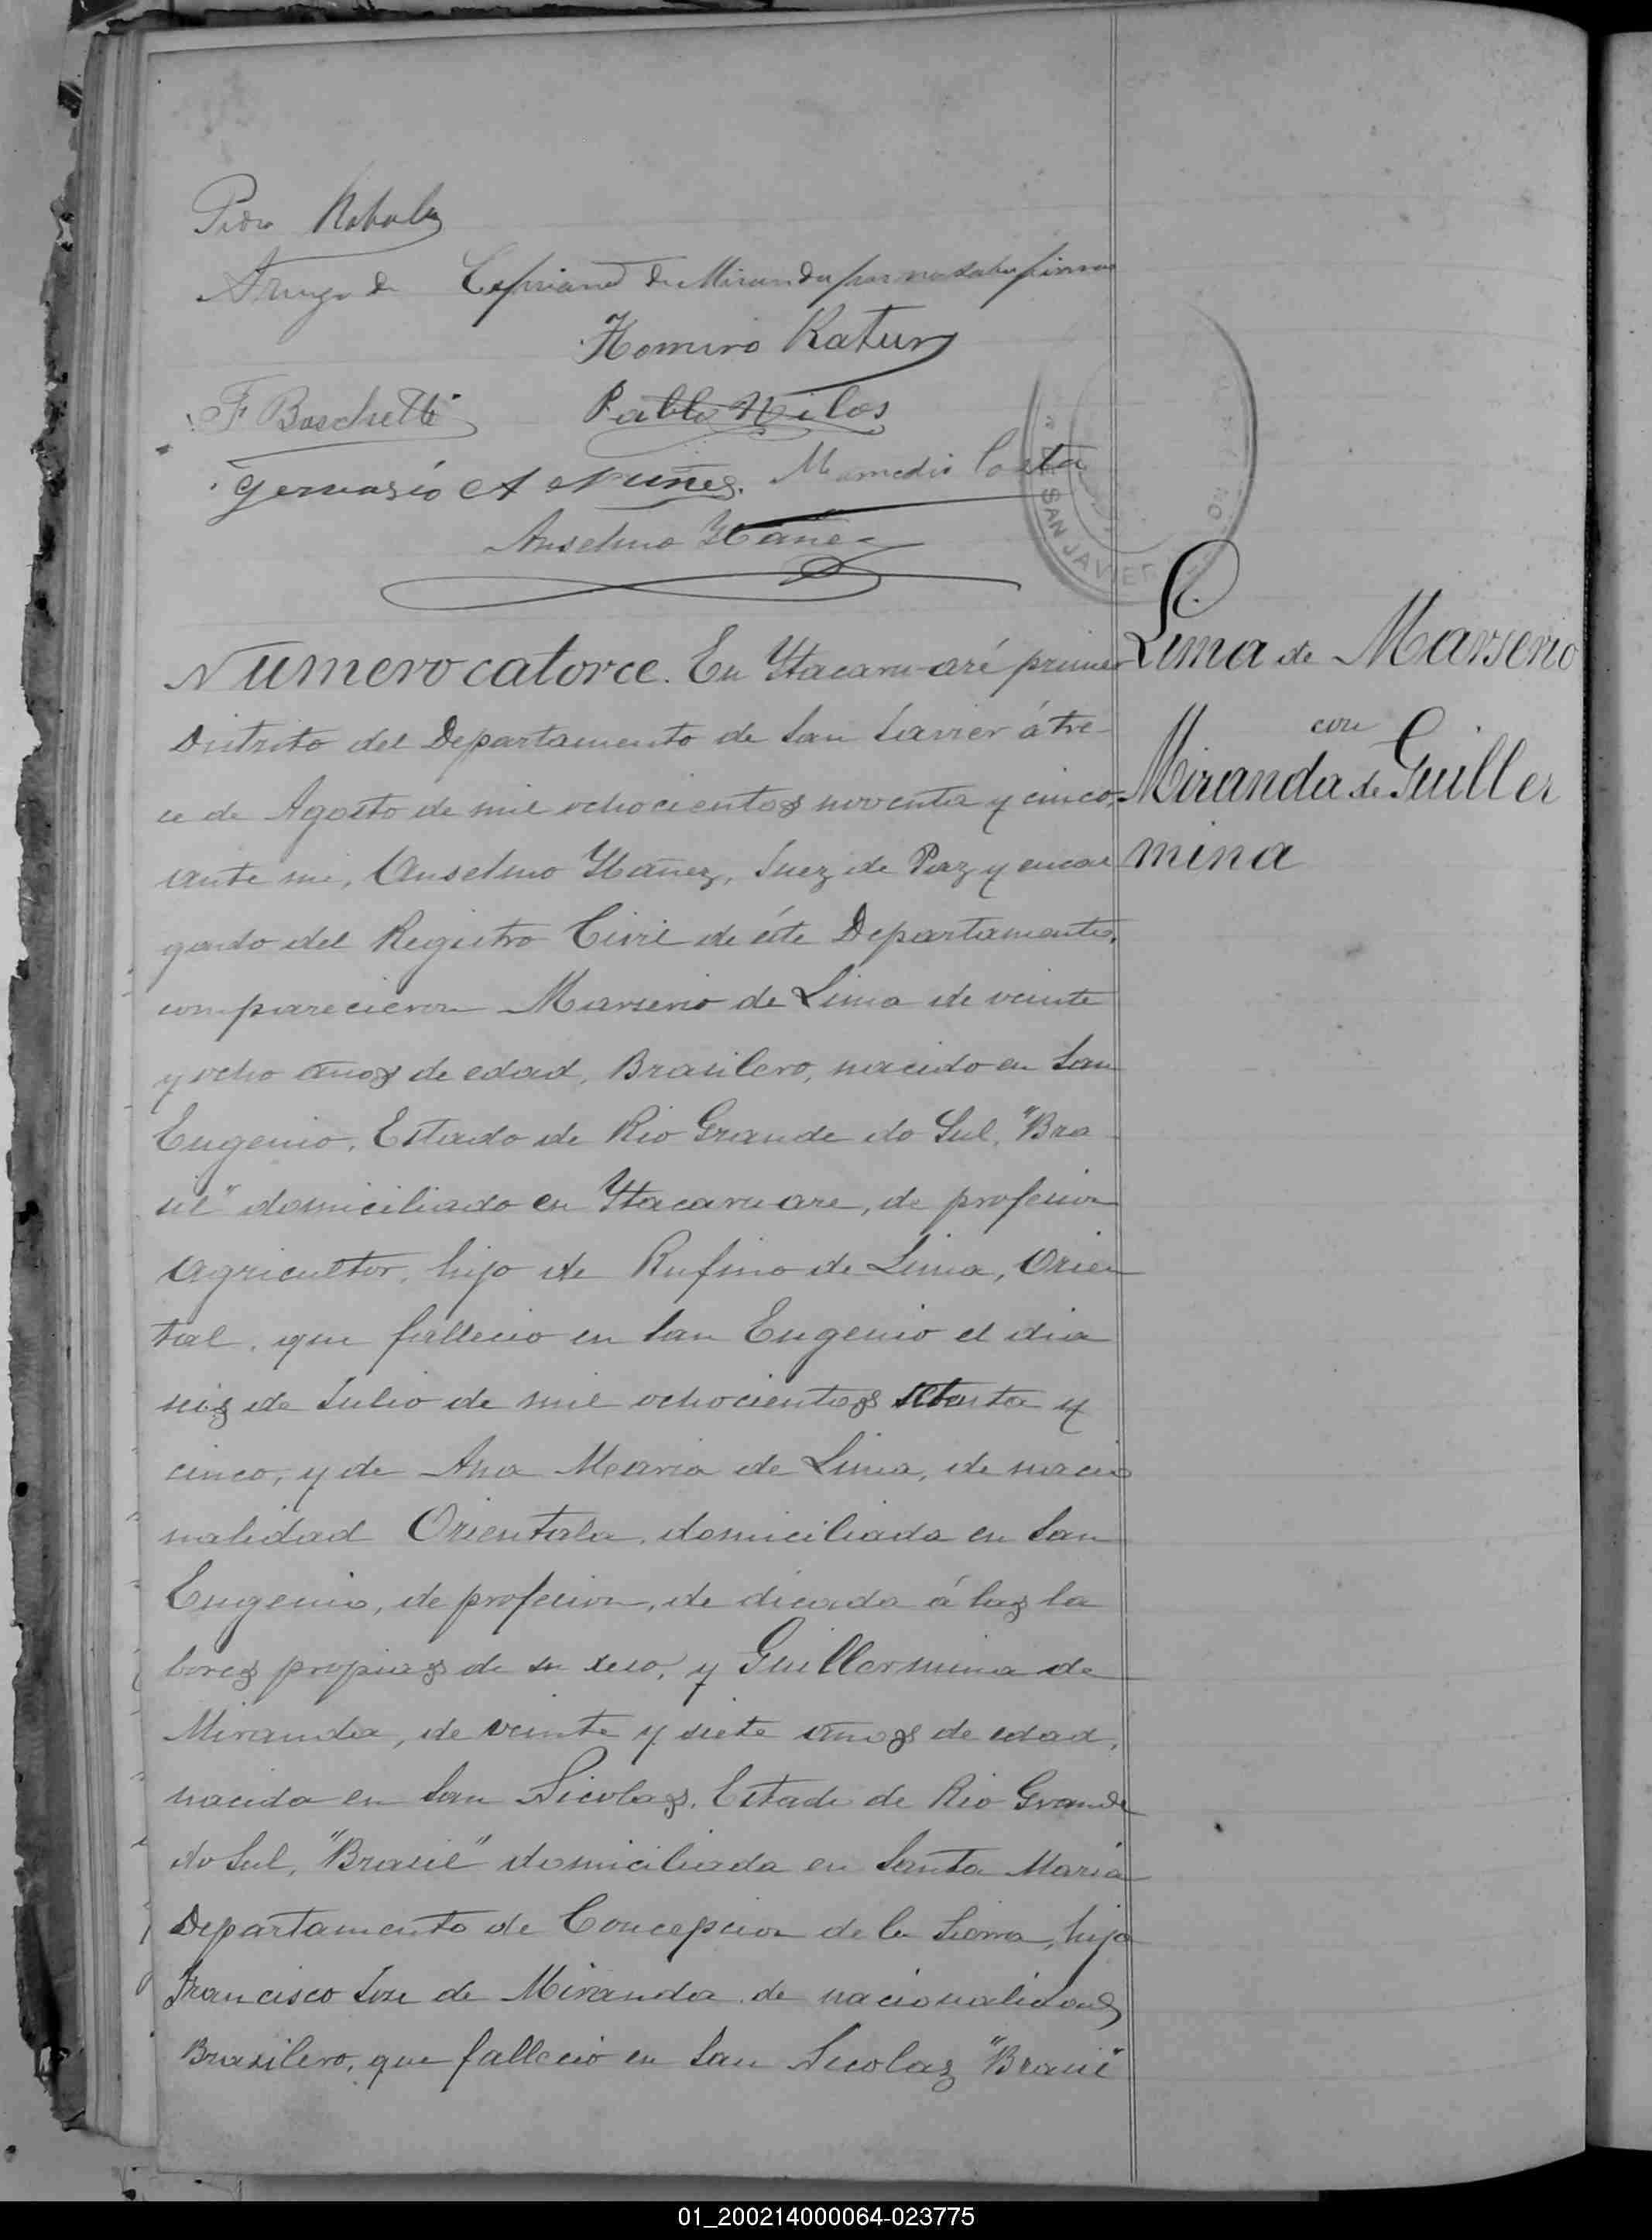 Pedro
A ruego de Cipriano de Miranda por no saber firmar
Homero Katur
F Boschetti Pablo Nilos
Gervasio A Nuñes. Mamedio Costa
Anselmo Ybañez
SAN JAVIER
Lima de Marserio
con
Miranda de Guiller
mina
Numero catorce. En Ytacaru-aré primer
Distrito del Departamento de San Javier á tre-
ce de Agosto de mil ochocientos noventa y cinco,
ante mi, Anselmo Ybañez, Juez de Paz y encar
gado del Registro Civil de éste Departamento,
comparecieron Marserio de Lima de veinte
y ocho años de edad, Brasilero, nacido en San
Eugenio, Estado de Rio Grande do Sul, "Bra
sil" domiciliado en Ytacaruare, de profesion
Agricultor, hijo de Rufino de Lima, Orien
tal, que fallecio en San Eugenio el dia
seis de Julio de mil ochocientos setenta y
cinco, y de Ana Maria de Lima, de nacio
nalidad Orientala, domiciliada en San
Eugenio, de profecion, de dicada á las la
bores propias de su sexo, y Guillermina de
Miranda, de veinte y siete años de edad,
nacida en San Nicolas, Estado de Rio Grande
do Sul, "Brasil" domiciliada en Santa Maria
Departamento de Concepcion de la Sierra, hija
Francisco Jose de Miranda de nacionalidad
Brasilero, que falleció en San Nicolas "Brasil"
01_200214000064-023775